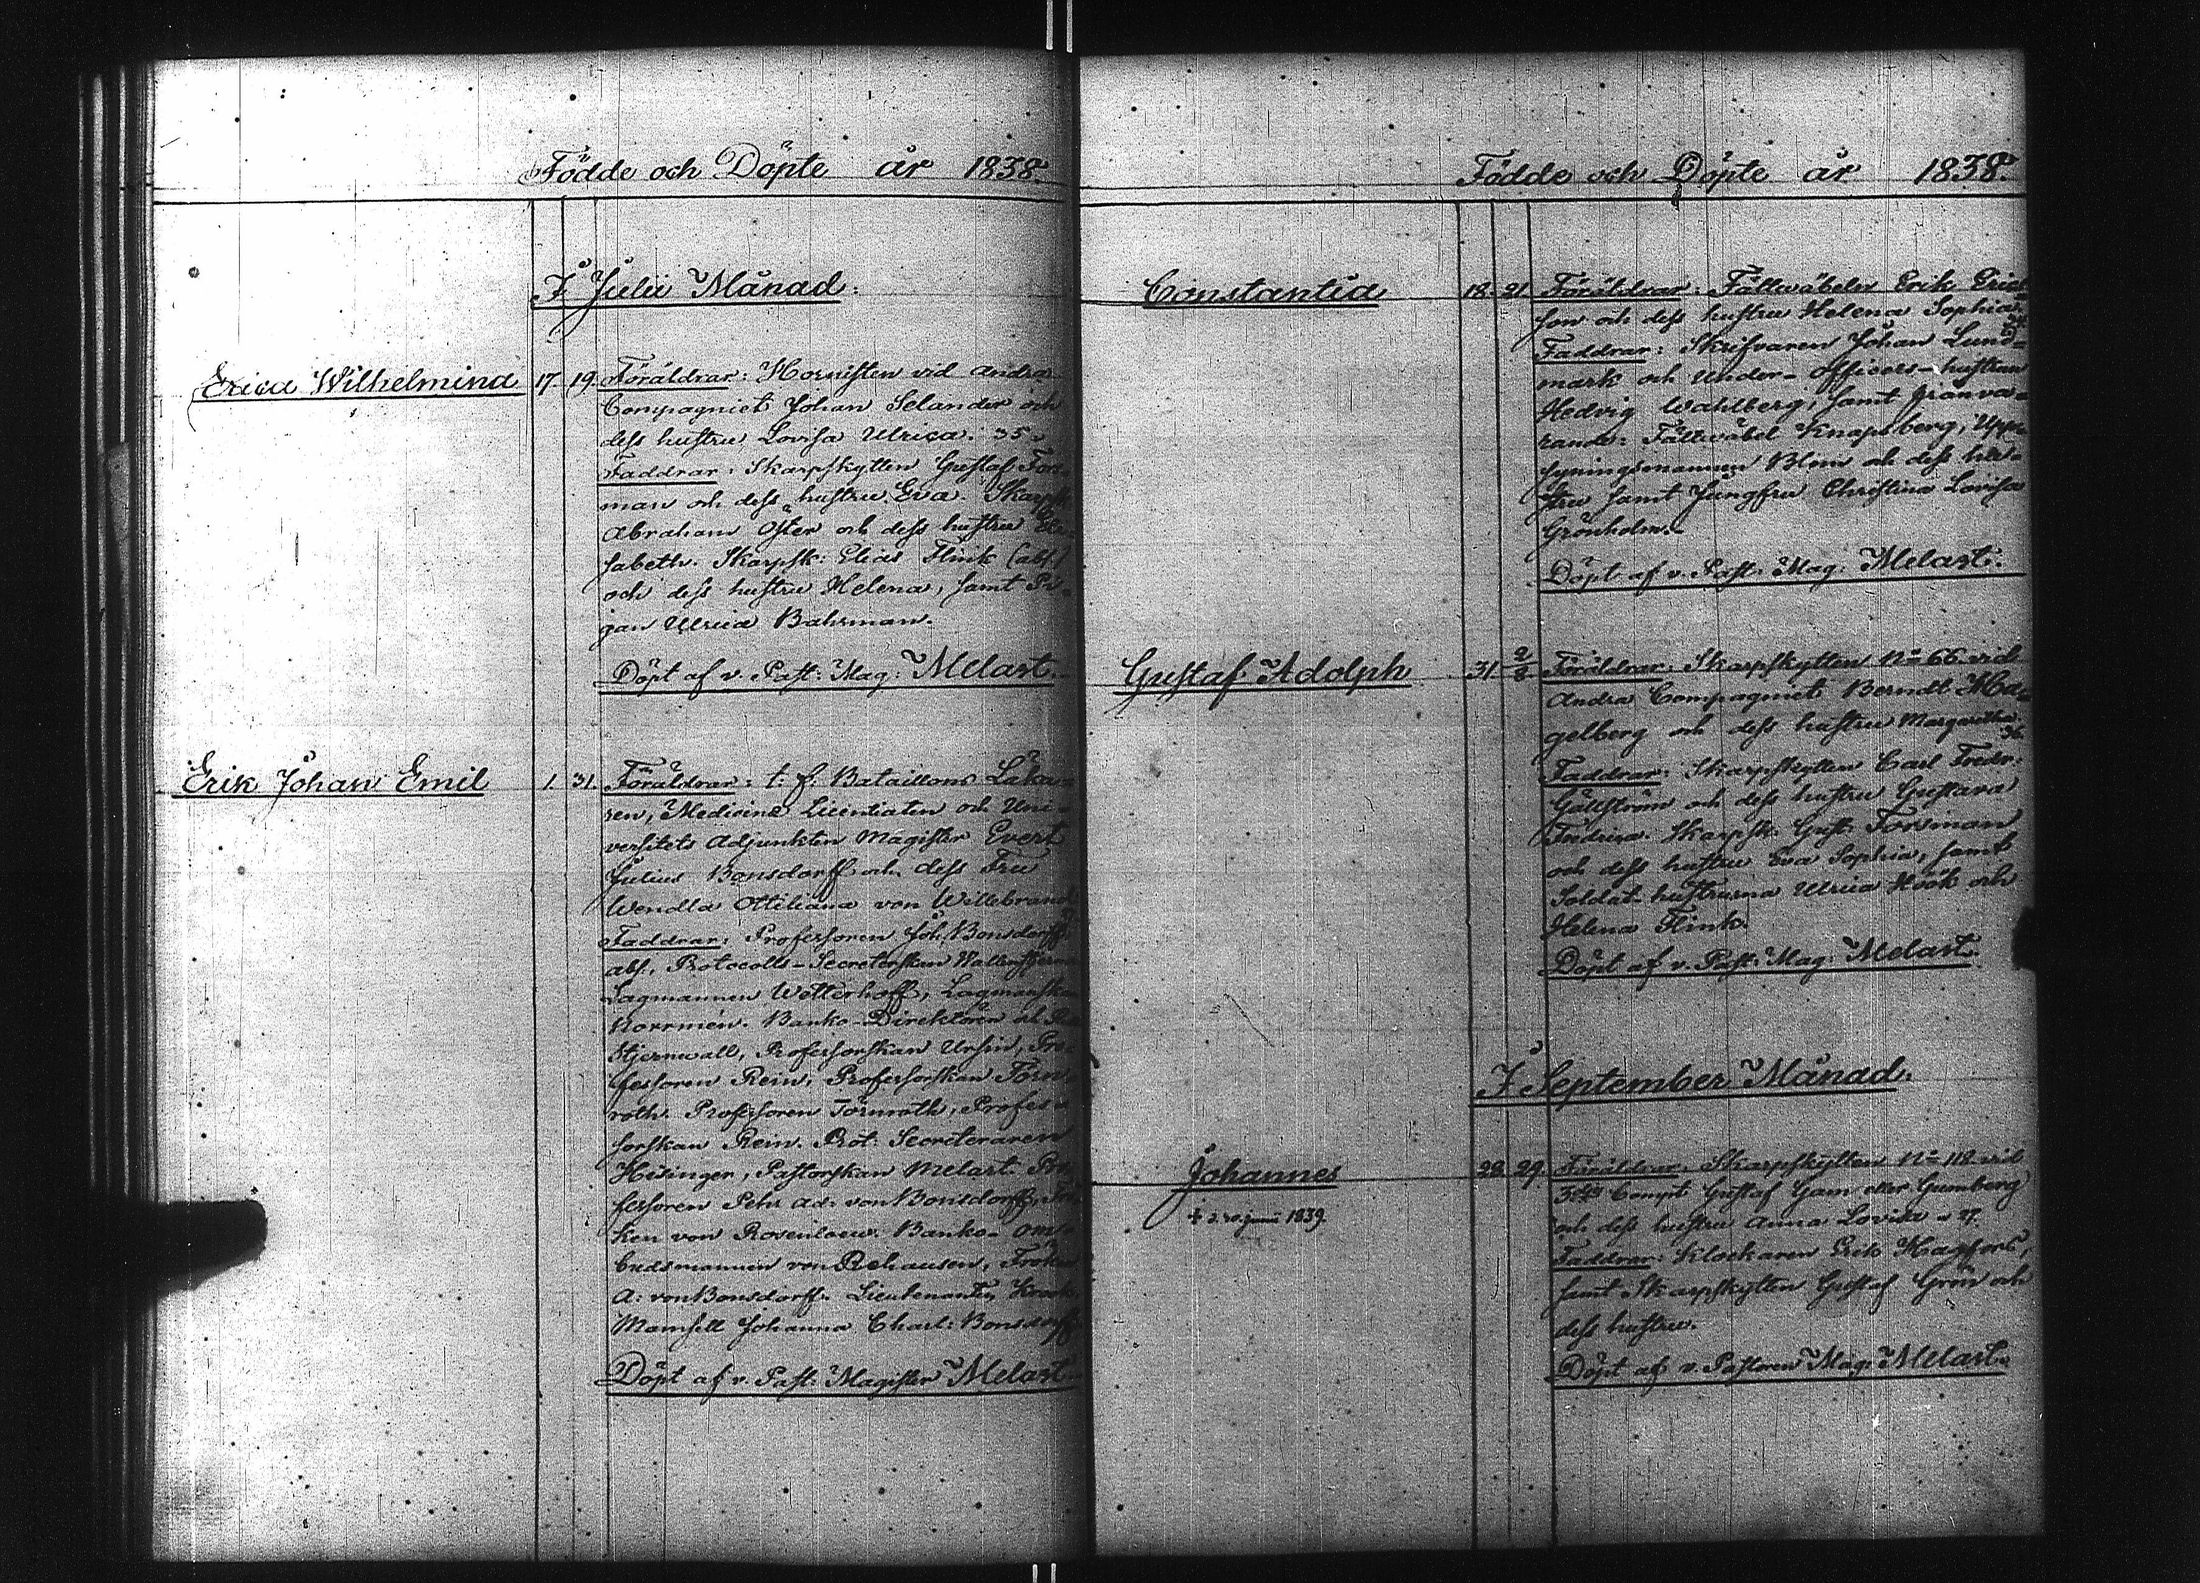 Födde och Döpte år 1838.
I Julii Månad.
Erica Wilhelmina 17. 19. Föräldrar: Hornisten vid Andra
Compagniet Johan Selander och
dess hustru Lovisa Ulrica. 35.
Faddrar: Skarpskytten Gustaf Fors-
man och dess hustru Eva. Skarpsk.
Abraham Öster och dess hustru Eli-
sabeth. Skarpsk: Elias Flink (abs.)
och dess hustru Helena, samt Pi-
gan Ulrica Bahrman.
Döpt af v. Past: Mag: Melart.
Erik Johan Emil 1. 31. Föräldrar: t. f. Bataillons Läka-
ren, Medicine Licentiaten och Uni-
versitets Adjunkten Magister Evert
Julius Bonsdorff och dess Fru
Wendla Ottiliana von Willebrand
Faddrar: Professoren Joh. Bonsdorff
abs., Protocolls-Secreterskan
Lagmannen Wetterhoff, Lagmanskan
Norrmén. Banko-Direktören
Stjernvall, Professorskan Ursin, Pro-
fessoren Rein, Professorskan Törn-
roth. Professoren Törnroth, Profes-
sorskan Rein. Prot: Secreteraren
Hisinger, Pastorskan Melart. Pro-
fessoren Pehr Ad: von Bonsdorff, Frö-
ken von Rosenlaew. Banko-Om-
budsmannen von Rehausen, Fröken
A: von Bonsdorff. Lieutenanten
Mamsell Johanna Charl: Bonsdorff
Döpt af v. Past: Magister Melart.
Födde och Döpte år 1838.
Constantia 18. 21. Föräldrar: Fältwäbeln Erik Erics-
son och dess hustru Helena Sophia
Faddrar: Skrifvaren Johan Lund-
mark och Under-officers-hustrun
Hedvig Wahlberg, samt
Fältwäbel Knapsberg, Upp-
syningsmannen Blom och dess hu-
stru samt Jungfru Christina Lovisa
Grönholm.
Döpt af v. Past: Mag: Melart.
Gustaf Adolph 31. 2/8 Föräldrar: Skarpskytten No 66 vid
Andra Compagniet Berndt Ha-
gelberg och dess hustru Margaretha
36.
Faddrar: Skarpskytten Carl Fredr:
Gällström och dess hustru Gustava
Fredrica. Skarpsk: Gust: Forsman
och dess hustru Eva Sophia, samt
Soldat-hustrurna Ulrica Höök och
Helena Flink.
Döpt af v. Past: Mag: Melart.
I September Månad.
Johannes 28. 29. Föräldrar: Skarpskytten No 118 vid
3dje Compt Gustaf Gam eller Gumberg
och dess hustru Anna Lovisa 27.
† d. 20 juni 1839.
Faddrar: Klockaren Erik Hagfors,
samt Skarpskytten Gustaf Grön och
dess hustru.
Döpt af v. Pastoren Mag: Melart.